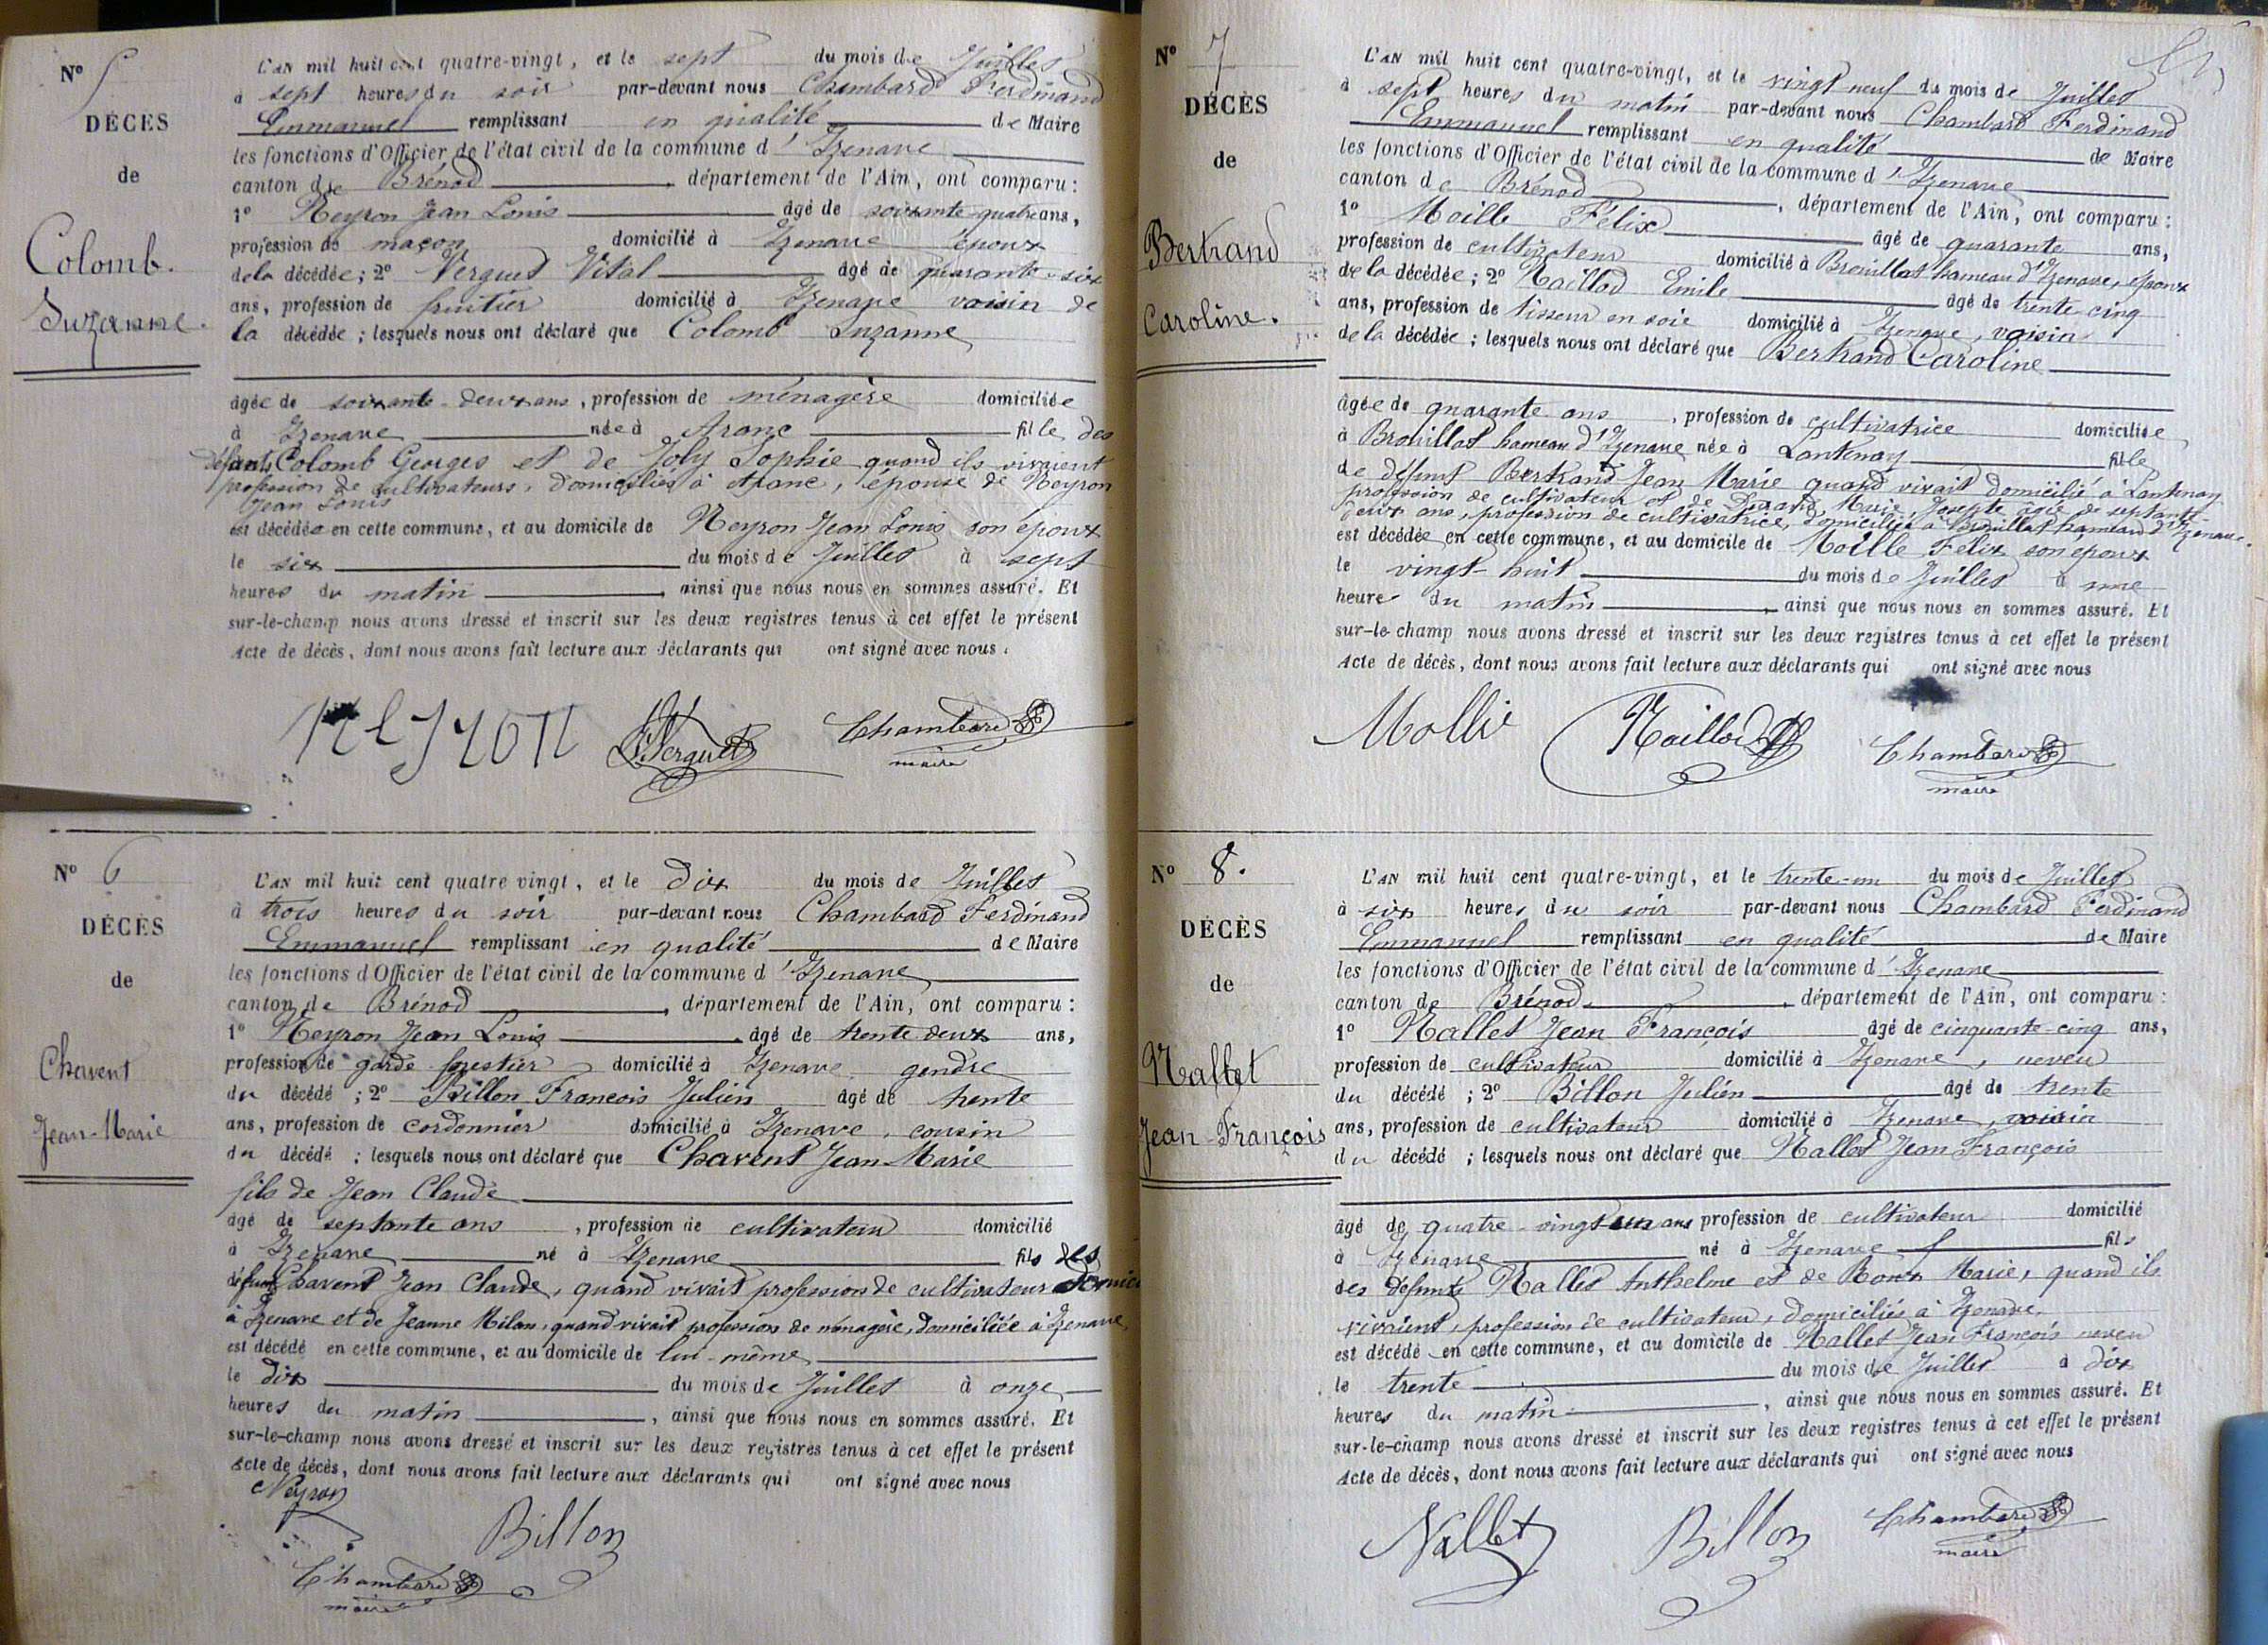 Nº 5
DÉCÈS
de
Colomb.
Suzanne.
L'AN mil huit cent quatre-vingt, et le sept du mois de Juillet
à sept heures du soir par-devant nous Chambard Ferdinand
Emmanuel remplissant en qualité de Maire
les fonctions d'Officier de l'état civil de la commune d'Izenave
canton de Brénod, département de l'Ain, ont comparu :
1º Neyron Jean Louis âgé de soixante-quatre ans,
profession de maçon domicilié à Izenave époux
de la décédée ; 2º Verguet Vital âgé de quarante-six
ans, profession de fruitier domicilié à Izenave voisin de
la décédée ; lesquels nous ont déclaré que Colomb Suzanne
âgée de soixante-deux ans, profession de ménagère domiciliée
à Izenave née à Aranc fille des
défunts Colomb Georges et de Joly Sophie quand ils vivaient
profession de cultivateurs, domiciliés à Aranc, épouse de Neyron
Jean Louis
est décédée en cette commune, et au domicile de Neyron Jean Louis son époux
le six du mois de Juillet à sept
heures du matin, ainsi que nous nous en sommes assuré. Et
sur-le-champ nous avons dressé et inscrit sur les deux registres tenus à cet effet le présent
acte de décès, dont nous avons fait lecture aux déclarants qui ont signé avec nous.
Neyron Verguet Chambard
maire
Nº 6
DÉCÈS
de
Chavent
Jean-Marie
L'AN mil huit cent quatre vingt, et le dix du mois de Juillet
à trois heures du soir par-devant nous Chambard Ferdinand
Emmanuel remplissant en qualité de Maire
les fonctions d'Officier de l'état civil de la commune d'Izenave
canton de Brénod, département de l'Ain, ont comparu :
1º Neyron Jean Louis âgé de trente deux ans,
profession de garde forestier domicilié à Izenave gendre
du décédé ; 2º Billon François Julien âgé de trente
ans, profession de cordonnier domicilié à Izenave, cousin
du décédé ; lesquels nous ont déclaré que Chavent Jean Marie
fils de Jean Claude
âgé de septante ans, profession de cultivateur domicilié
à Izenave né à Izenave fils des
défunts Chavent Jean Claude, quand vivait profession de cultivateur domicilié
à Izenave et de Jeanne Milan, quand vivait profession de ménagère, domiciliée à Izenave
est décédé en cette commune, et au domicile de lui-même
le dix du mois de Juillet à onze
heures du matin, ainsi que nous nous en sommes assuré. Et
sur-le-champ nous avons dressé et inscrit sur les deux registres tenus à cet effet le présent
acte de décès, dont nous avons fait lecture aux déclarants qui ont signé avec nous
Neyron
Billon
Chambard
maire
Nº 7
DÉCÈS
de
Bertrand
Caroline.
L'AN mil huit cent quatre-vingt, et le vingt neuf du mois de Juillet
à sept heures du matin par-devant nous Chambard Ferdinand
Emmanuel remplissant en qualité de Maire
les fonctions d'Officier de l'état civil de la commune d'Izenave
canton de Brénod, département de l'Ain, ont comparu :
1º Moille Félix âgé de quarante ans,
profession de cultivateur domicilié à Brouillat hameau d'Izenave, époux
de la décédée ; 2º Maillod Emile âgé de trente cinq
ans, profession de tisseur en soie domicilié à Izenave, voisin
de la décédée ; lesquels nous ont déclaré que Bertrand Caroline
âgée de quarante ans, profession de cultivatrice domiciliée
à Brouillat hameau d'Izenave née à Lantenay fille
de défunt Bertrand Jean Marie quand vivait domicilié à Lantenay
profession de cultivateur et de Durand Marie, Josepte âgée de septante-
deux ans, profession de cultivatrice, domiciliée à Brouillat hameau d'Izenave.
est décédée en cette commune, et au domicile de Moille Félix son époux
le vingt-huit du mois de Juillet à une
heure du matin, ainsi que nous nous en sommes assuré. Et
sur-le-champ nous avons dressé et inscrit sur les deux registres tenus à cet effet le présent
acte de décès, dont nous avons fait lecture aux déclarants qui ont signé avec nous
Mollie Maillod Chambard
maire
Nº 8.
DÉCÈS
de
Nallet
Jean-François
L'AN mil huit cent quatre-vingt, et le trente-un du mois de Juillet
à six heures du soir par-devant nous Chambard Ferdinand
Emmanuel remplissant en qualité de Maire
les fonctions d'Officier de l'état civil de la commune d'Izenave
canton de Brénod, département de l'Ain, ont comparu :
1º Nallet Jean François âgé de cinquante-cinq ans,
profession de cultivateur domicilié à Izenave, neveu
du décédé ; 2º Billon Julien âgé de trente
ans, profession de cultivateur domicilié à Izenave, voisin
du décédé ; lesquels nous ont déclaré que Nallet Jean François
âgé de quatre-vingt-un ans profession de cultivateur domicilié
à Izenave né à Izenave fils
des défunts Nallet Anthelme et de Marie, quand ils
vivaient, profession de cultivateur, domiciliés à Izenave
est décédé en cette commune, et au domicile de Nallet Jean François neveu
le trente du mois de Juillet à dix
heures du matin, ainsi que nous nous en sommes assuré. Et
sur-le-champ nous avons dressé et inscrit sur les deux registres tenus à cet effet le présent
acte de décès, dont nous avons fait lecture aux déclarants qui ont signé avec nous
Nallet Billon Chambard
maire